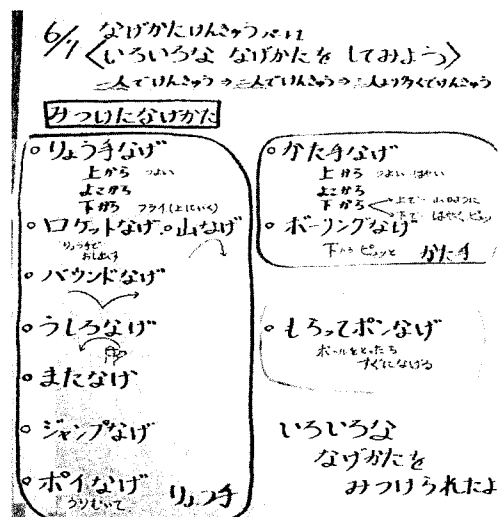 6/1 なげかたけんきゅう パート1
〈いろいろな なげかたを してみよう〉
二人でけんきゅう→三人でけんきゅう→三人より多くでけんきゅう
みつけたなげかた
○りょう手なげ
上から つよい
よこから
下から フライ(上にいく)
○ロケットなげ ○山なげ
りょう手で
おし出す
○バウンドなげ
○うしろなげ
○またなげ
○ジャンプなげ
○ポイなげ
りょう手
○かた手なげ
上から つよい はやい
よこから
下から
上で 山のように
下で はやく ピュッ
○ボーリングなげ
下から ピュッと かた手
○もらってポンなげ
ボールをとったら
すぐになげる
いろいろな
なげかたを
みつけられたよ